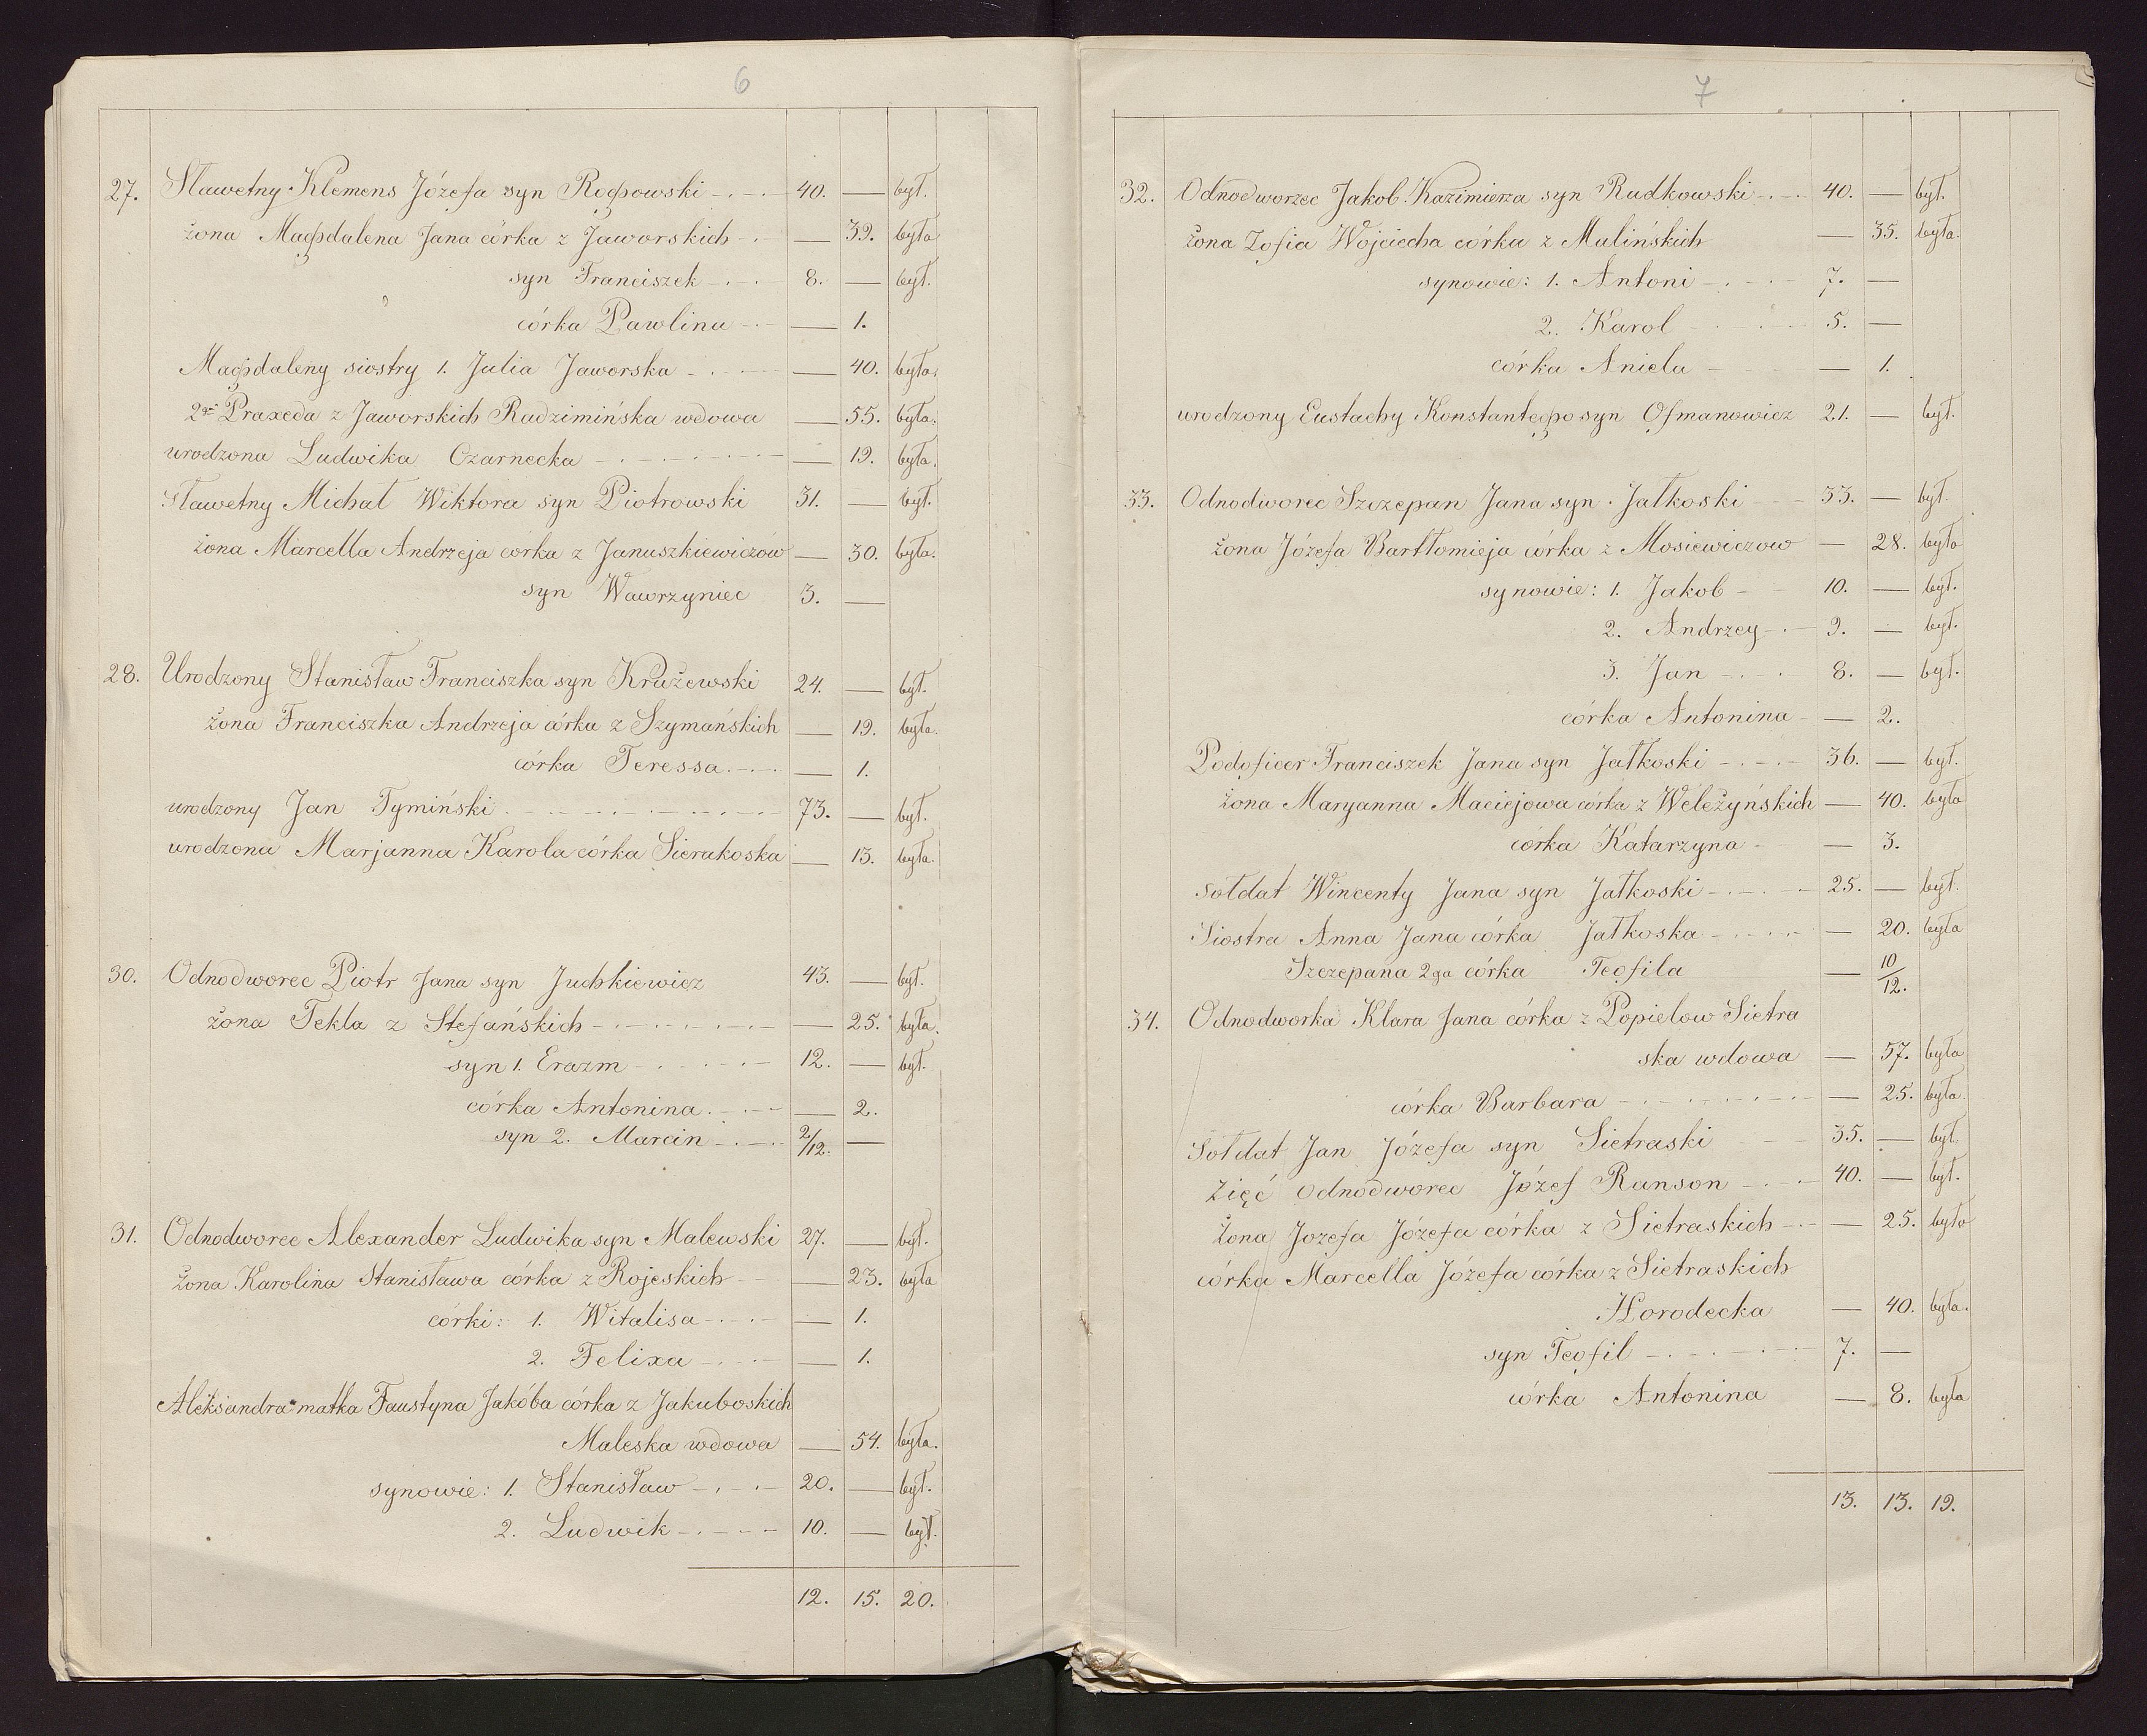 6
27. Sławetny Klemens Józefa syn Rogowski 40. — był.
żona Magdalena Jana córka z Jaworskich — 39. była
syn Franciszek 8. — był.
córka Pawlina — 1.
Magdaleny siostry 1. Julia Jaworska — 40. była.
2ga Praxeda z Jaworskich Radzimińska wdowa — 55. była.
urodzona Ludwika Czarnecka — 19. była.
Sławetny Michał Wiktora syn Piotrowski 31. — był.
żona Marcella Andrzeja córka z Januszkiewiczów — 30. była.
syn Wawrzyniec 3. —
28. Urodzony Stanisław Franciszka syn Krużewski 24. — był.
żona Franciszka Andrzeja córka z Szymańskich — 19. była.
córka Teressa — 1.
urodzony Jan Tymiński 73. — był.
urodzona Marjanna Karola córka Sierakoska — 13. była.
30. Odnodworec Piotr Jana syn Juchkiewicz 43. — był.
żona Tekla z Stefańskich — 25. była.
syn 1. Erazm 12. — był.
córka Antonina — 2.
syn 2. Marcin 2/12. —
31. Odnodworec Alexander Ludwika syn Malewski 27. — był.
żona Karolina Stanisława córka z Rojeskich — 23. była
córki: 1. Witalisa — 1.
2. Felixa — 1.
Aleksandra matka Faustyna Jakóba córka z Jakuboskich
Maleska wdowa — 54. była.
synowie: 1. Stanisław 20. — był.
2. Ludwik 10. — był.
12. 15. 20.
7
32. Odnodworzec Jakob Kazimierza syn Rudkowski 40. — był.
żona Zofia Wojciecha córka z Malińskich — 35. była.
synowie: 1. Antoni 7. —
2. Karol 5. —
córka Aniela — 1.
urodzony Eustachy Konstantego syn Ofmanowicz 21. — był.
33. Odnodworec Szczepan Jana syn Jałkoski 33. — był.
żona Józefa Bartłomieja córka z Mosiewiczow — 28. była
synowie: 1. Jakob 10. — był.
2. Andrzey 9. — był.
3. Jan 8. — był.
córka Antonina — 2.
Podoficer Franciszek Jana syn Jałkoski 36. — był.
żona Maryanna Maciejowa córka z Weleżyńskich — 40. była
córka Katarzyna — 3.
sołdat Wincenty Jana syn Jałkoski 25. — był.
Siostra Anna Jana córka Jałkoska — 20. była
Szczepana 2ga córka Teofila — 10/12.
34. Odnodworka Klara Jana córka z Popielow Sietra
ska wdowa — 57. była
córka Barbara — 25. była.
Sołdat Jan Józefa syn Sietraski 35. — był.
Zięć odnodworec Józef Ranson 40. — był.
żona Jozefa Józefa córka z Sietraskich — 25. była
córka Marcella Józefa córka z Sietraskich
Horodecka — 40. była.
syn Teofil 7. —
córka Antonina — 8. była
13. 13. 19.